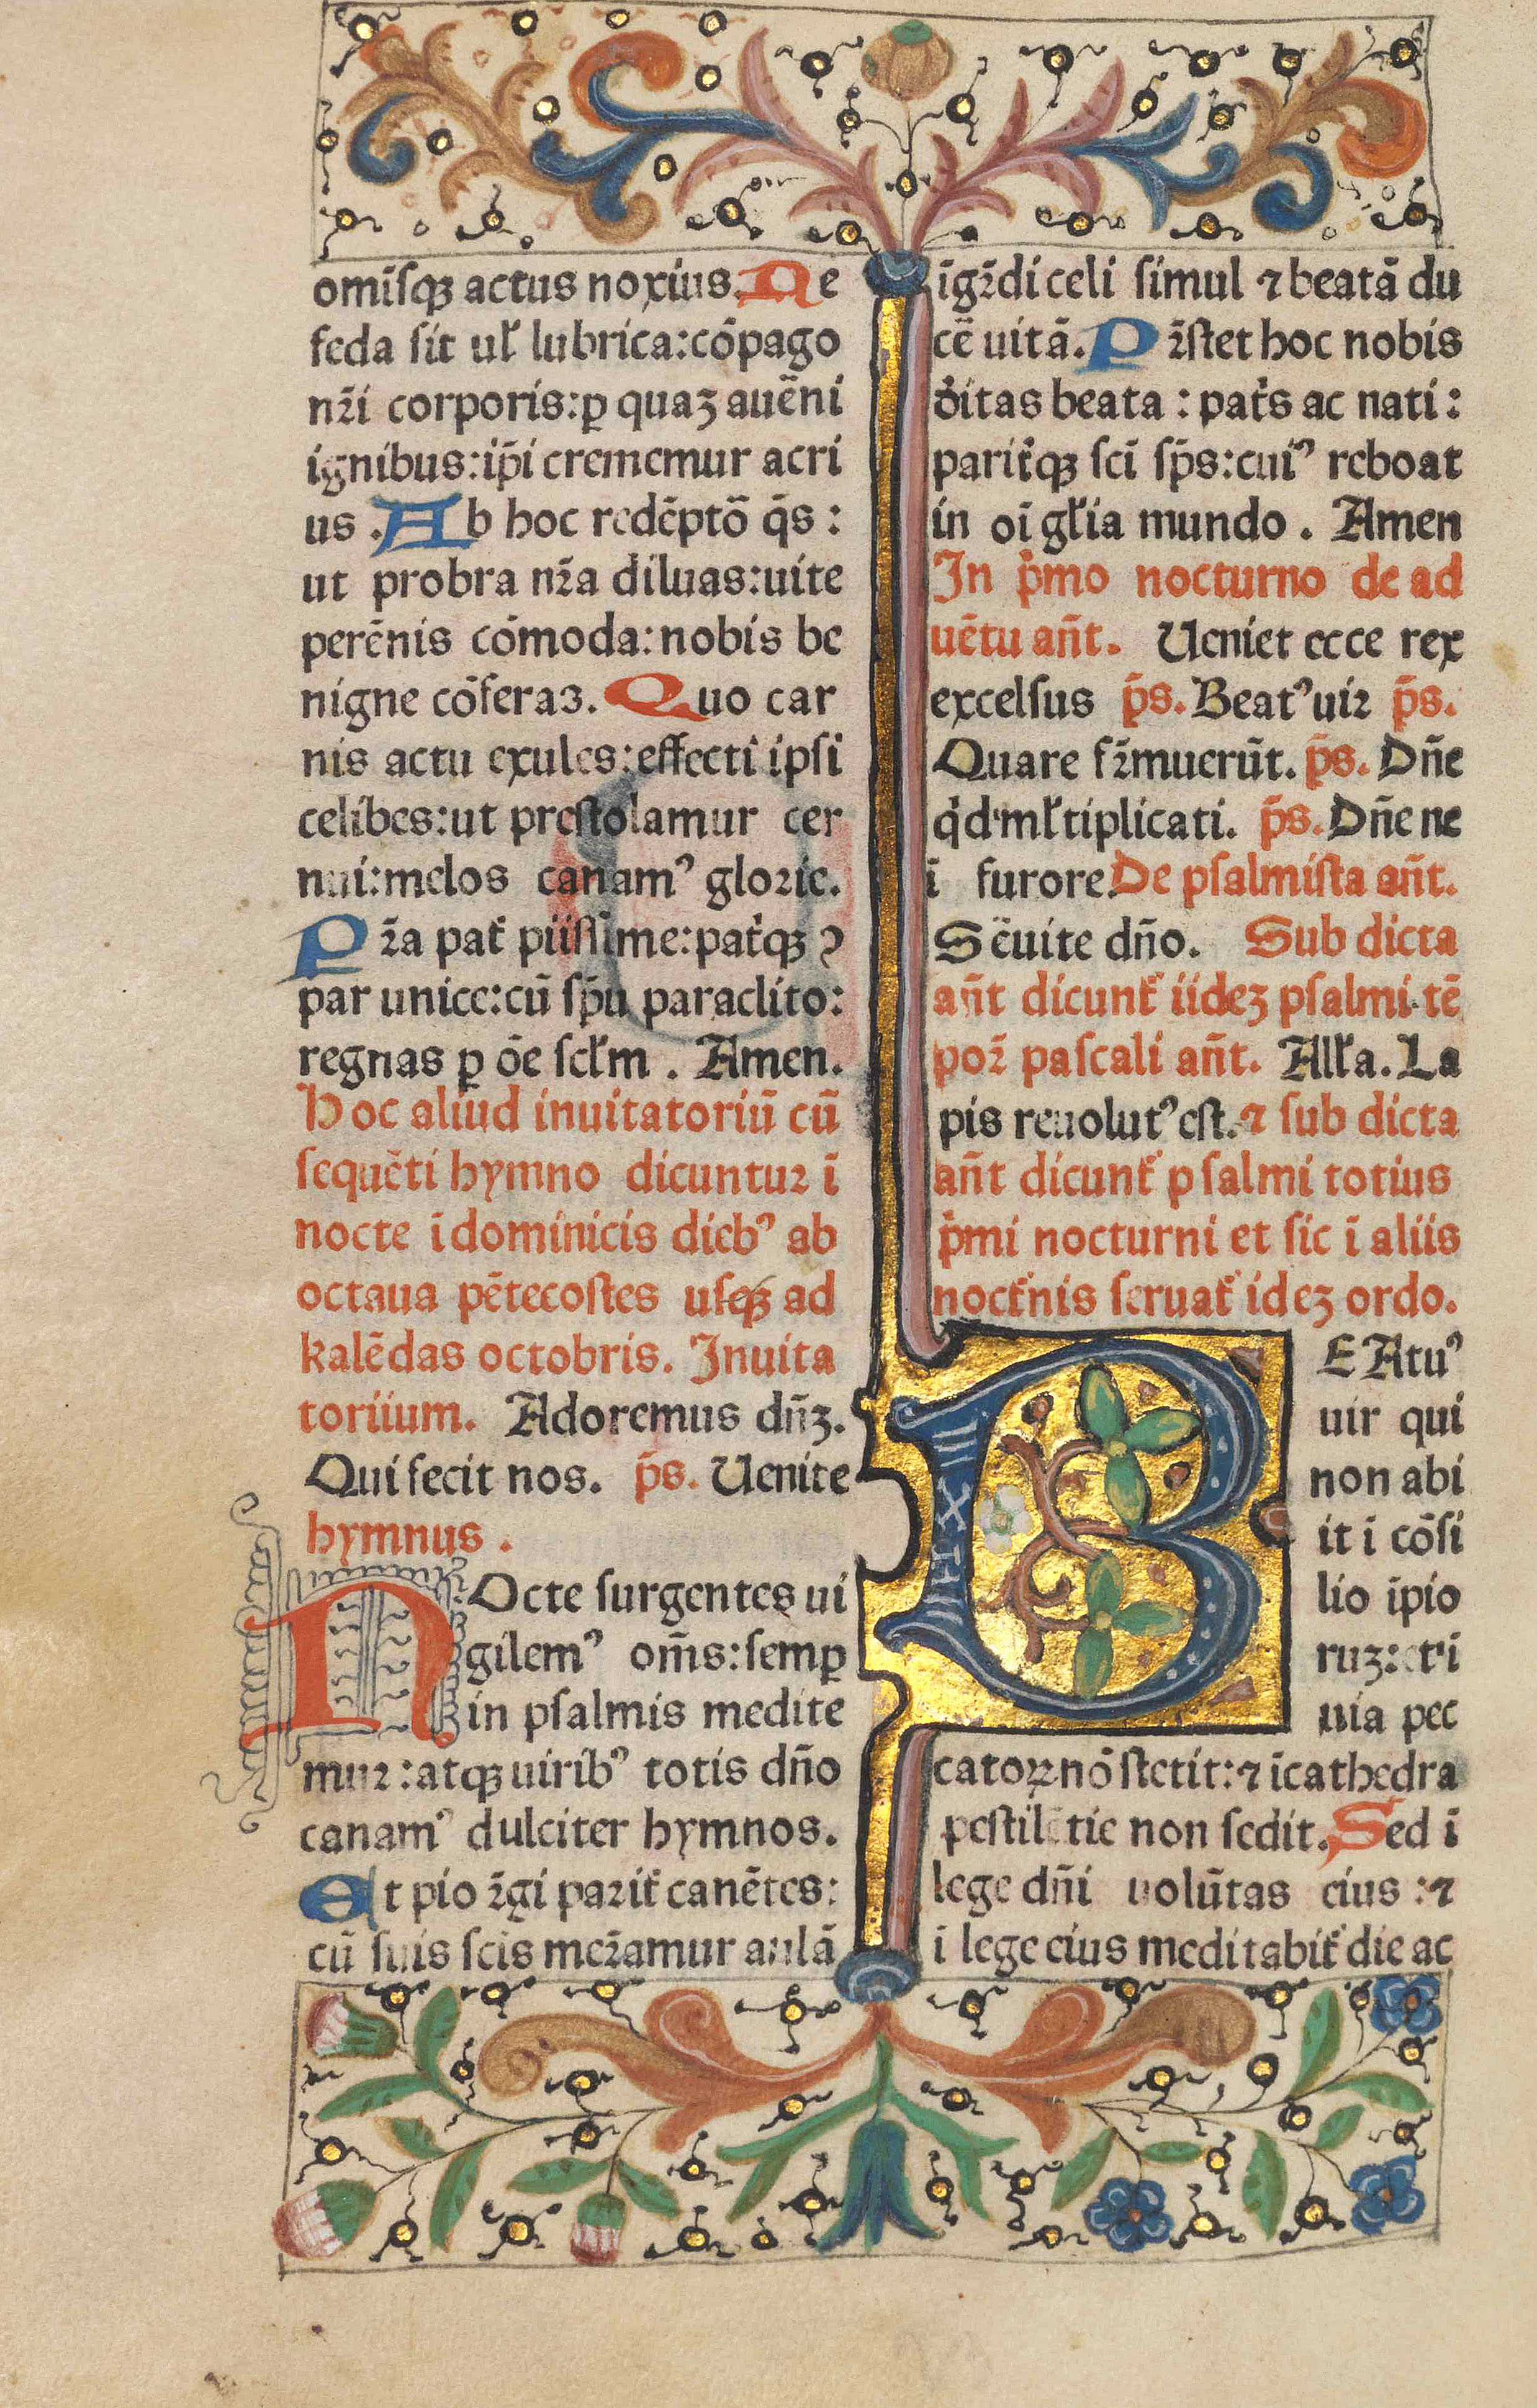 omīsqꝫ actus noxius. Ne
feda sit ul̉ lubrica: cōpago
nr̄i corporis: ꝑ quaꝫ auēni
ignibus: ip̄i crememur acri
us. Ab hoc redēptō q̄s:
ut probra nr̄a diluas: uite
perēnis cōmoda: nobis be
nigne cōferas. Quo car
nis actu exules: effecti ipsi
celibes: ut prestolamur cer
nui: melos canamꝰ glorie.
Pr̄a pat̉ piissime: pat̉qꝫ ꝯ
par unice: cū sp̄u paraclito:
regnas ꝑ ōe scl̉m. Amen.
Hoc aliud inuitatoriū cū
sequēti hymno dicuntur ī
nocte ī dominicis diebꝰ ab
octaua pētecostes usqꝫ ad
kalēdas octobris. Inuita
toriium. Adoremus dn̄ꝫ.
Qui fecit nos. p̄s. Uenite
hymnus.
NOcte surgentes ui
gilemꝰ om̄s: semꝑ
in psalmis medite
mur: atqꝫ uiribꝰ totis dn̄o
canamꝰ dulciter hymnos.
Et pio r̄gi parit̉ canētes:
cū suis scis mer̄amur aulā
īgr̄di celi simul ⁊ beatā du
cē uitā. Pr̄stet hoc nobis
d̉itas beata: pat̉s ac nati:
parit̉qꝫ sc̄i sp̄s: cuiꝰ reboat
in oī gl̉ia mundo. Amen
In p̉mo nocturno de ad
uētu an̄t. Ueniet ecce rex
excelsus p̄s. Beatꝰ uir p̄s.
Quare fr̄muerūt. p̄s. Dn̄e
q̉d ml̉tiplicati. p̄s. Dn̄e ne
ī furore. De psalmista an̄t.
Sēuite dn̄o. Sub dicta
an̄t dicunt̉ iideꝫ psalmi. tē
por̄ pascali an̄t. All̉a. La
pis reuolutꝰ est. ⁊ sub dicta
an̄t dicunt̉ psalmi totius
p̉mi nocturni et sic ī aliis
noct̉nis seruat̉ ideꝫ ordo.
BEAtuꝰ
uir qui
non abi
it ī cōsi
lio īpio
ruꝫ: et ī
uia pec
catoꝝ nō stetit: ⁊ ī cathedra
pestilētie non sedit. Sed ī
lege dn̄i uolūtas eius: ⁊
ī lege eius meditabit̉ die ac